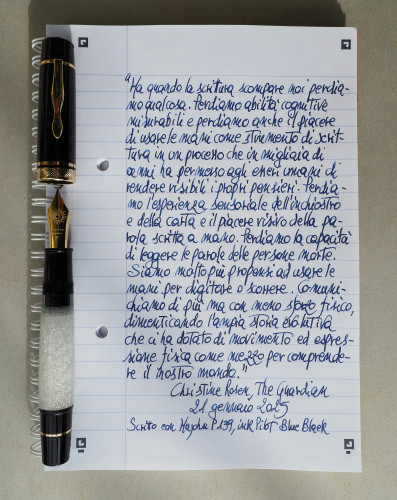 "Ma quando la scrittura scompare noi perdia-
mo qualcosa. Perdiamo abilità cognitive
misurabili e perdiamo anche il piacere
di usare le mani come strumento di scrit-
tura in un processo che in migliaia di
anni ha permesso agli esseri umani di
rendere visibili i propri pensieri. Perdia-
mo l'esperienza sensoriale dell'inchiostro
e della carta e il piacere visivo della pa-
rola scritta a mano. Perdiamo la capacità
di leggere le parole delle persone morte.
Siamo molto più propensi ad usare le
mani per digitare o scorrere. Comuni-
chiamo di più ma con meno sforzo fisico,
dimenticando l'ampia storia evolutiva
che ci ha dotato di movimento ed espres-
sione fisica come mezzo per comprende-
re il nostro mondo."
Christine Rosen, The Guardian
21 gennaio 2025
Scritto con Majohn P139, ink Pilot Blue Black